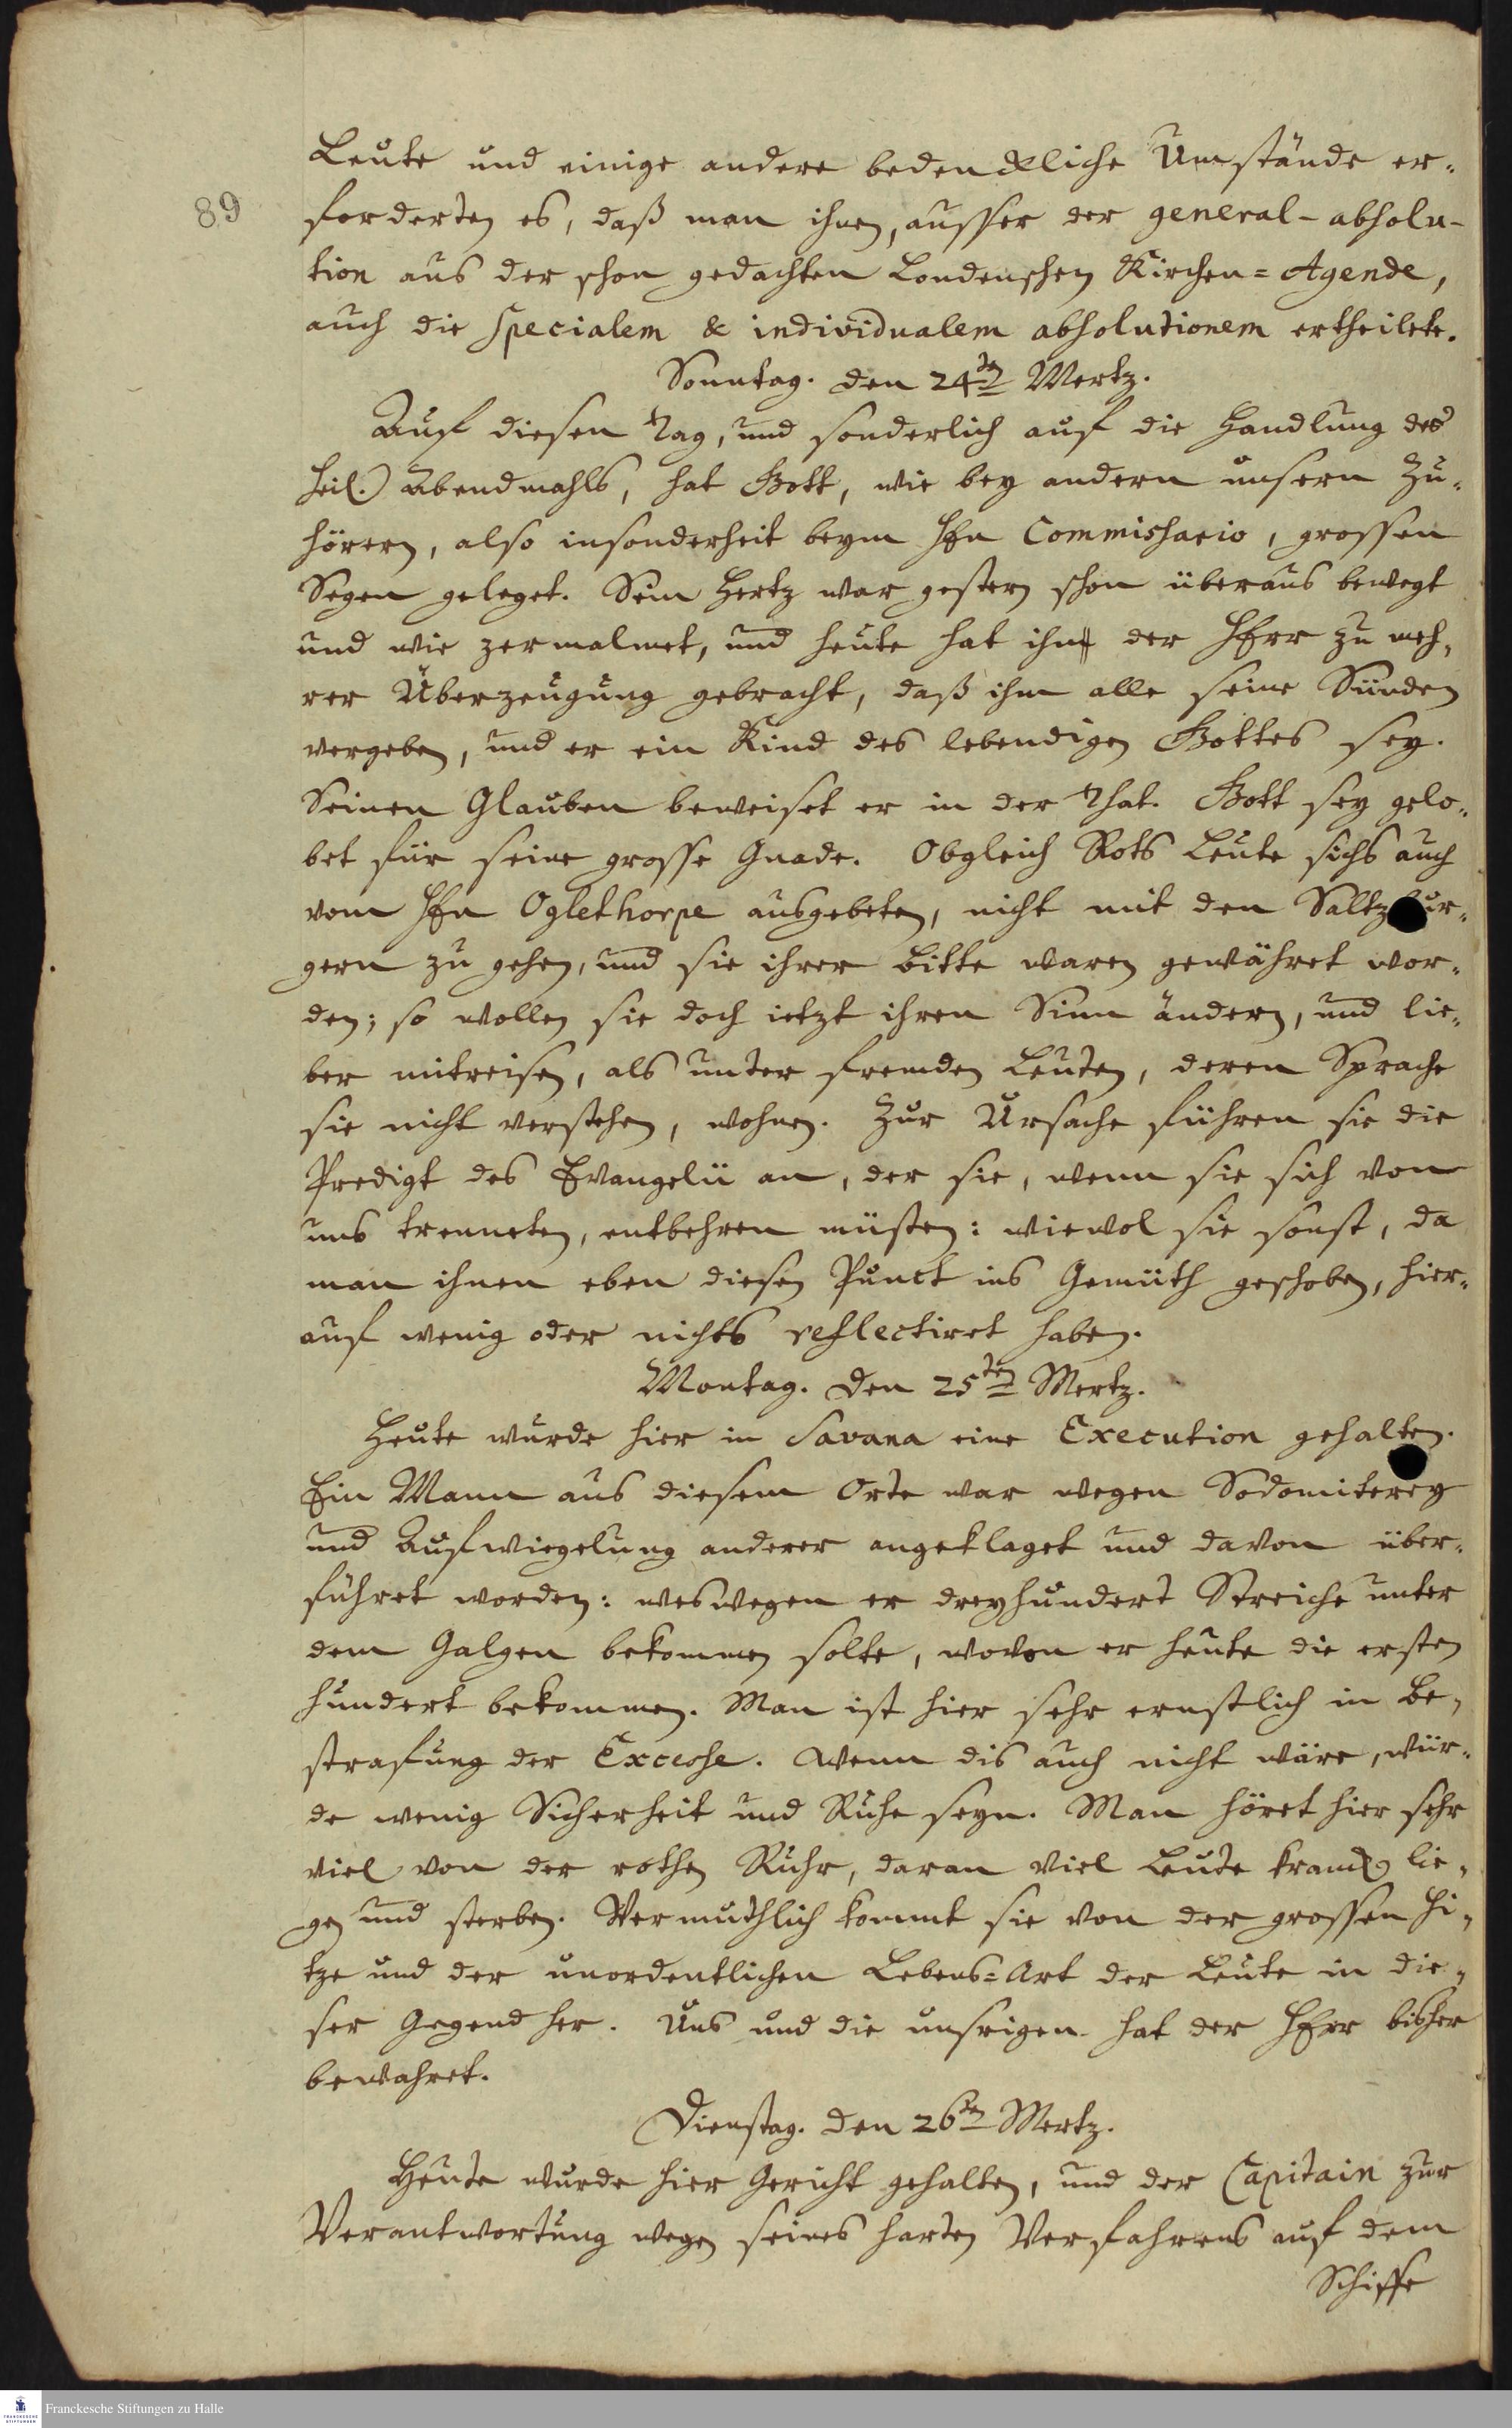 89
Leute und einige andere bedenckliche Umstände er-
forderten es, daß man ihnen, ausser der general-absolu-
tion aus der schon gedachten Londenschen Kirchen=Agende,
auch die specialem & individualem absolutionem ertheilete.
Sonntag. den 24ten Mertz.
Auf diesen Tag, und sonderlich auf die Handlung des
heil. Abendmahls, hat Gott, wie bey andern unsern Zu-
hörern, also insonderheit beym Hrn Commissario, grossen
Segen geleget. Sein Hertz war gestern schon überaus bewegt
und wie zermalmet, und heute hat ihn der HErr zu meh-
rer Überzeugung gebracht, daß ihm alle seine Sünden
vergeben, und er ein Kind des lebendigen Gottes sey.
Seinen Glauben beweiset er in der That. Gott sey gelo-
bet für seine grosse Gnade. Obgleich Rots Leute sichs auch
vom Hrn Oglethorpe ausgebeten, nicht mit den Saltzbur-
gern zu gehen, und sie ihrer Bitte waren gewähret wor-
den; so wollen sie doch ietzt ihren Sinn ändern, und lie-
ber mitreisen, als unter fremden Leuten, deren Sprache
sie nicht verstehen, wohnen. Zur Ursache führen sie die
Predigt des Evangelii an, der sie, wenn sie sich von
uns trenneten, entbehren müsten: wiewol sie sonst, da
man ihnen eben diesen Punct ins Gemüth geschoben, hier-
auf wenig oder nichts reflectiret haben.
Montag. den 25ten Mertz.
Heute wurde hier in Savana eine Execution gehalten.
Ein Mann aus diesem Orte war wegen Sodomiterey
und Aufwiegelung anderer angeklaget und davon über-
führet worden: weswegen er dreyhundert Streiche unter
dem Galgen bekommen solte, wovon er heute die ersten
hundert bekommen. Man ist hier sehr ernstlich in Be-
strafung der Excesse. Wenn dis auch nicht wäre, wür-
de wenig Sicherheit und Ruhe seyn. Man höret hier sehr
viel von der rothen Ruhr, daran viel Leute kranck lie-
gen und sterben. Vermuthlich kommt sie von der grossen Hi-
tze und der unordentlichen Lebens=Art der Leute in die-
ser Gegend her. Uns und die unsrigen hat der HErr bisher
bewahret.
Dienstag. den 26ten Mertz.
Heute wurde hier Gericht gehalten, und der Capitain zur
Verantwortung wegen seines harten Verfahrens auf dem
Schiffe
Franckesche Stiftungen zu Halle